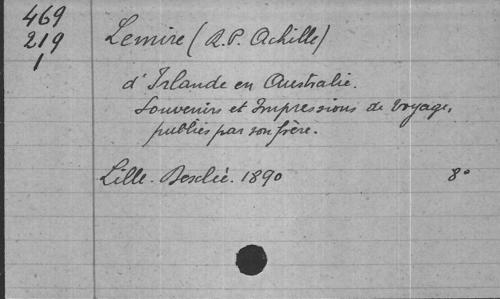 469
219
1
Lemire (R.P. Achille)
d'Irlande en Australie.
Souvenirs et Impressions de Voyage,
publiés par son frère.
Lille. Desclée. 1890 8°